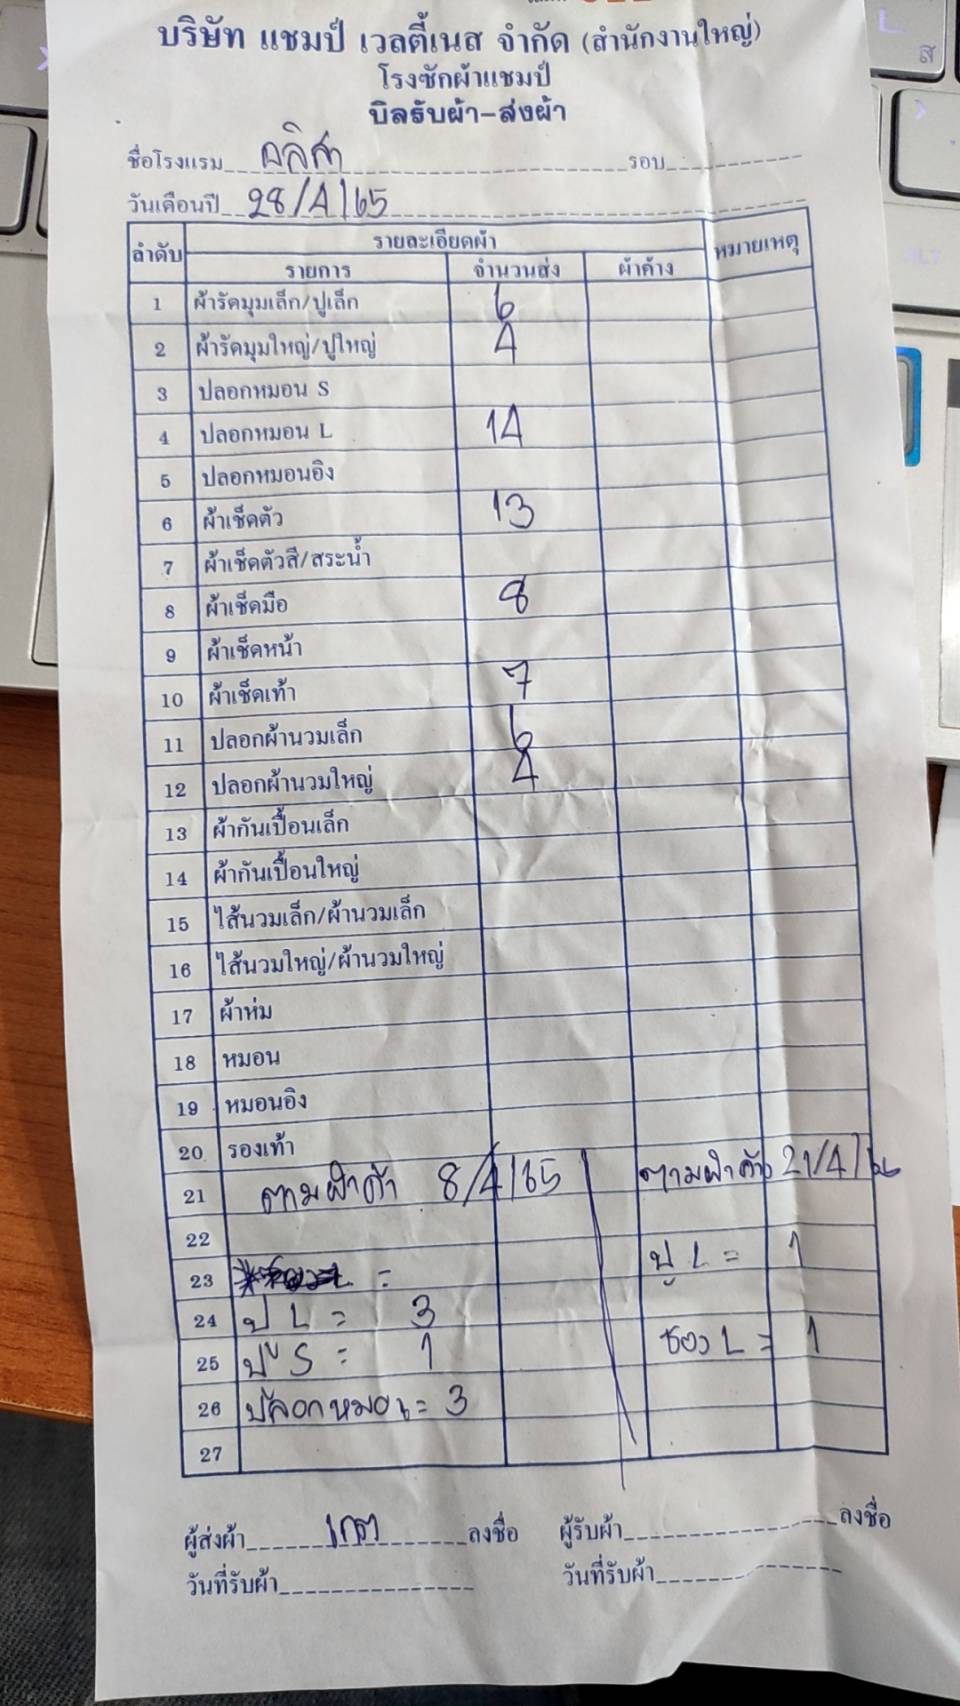 บริษัท แชมป์ เวลตี้เนส จำกัด (สำนักงานใหญ่)
โรงซักผ้าแชมป์
บิลรับผ้า-ส่งผ้า
ชื่อโรงแรม อลิสา รอบ
วันเดือนปี 28/4/65
ลำดับ รายละเอียดผ้า หมายเหตุ
รายการ จำนวนส่ง ผ้าค้าง
1 ผ้ารัดมุมเล็ก/ปูเล็ก 6
2 ผ้ารัดมุมใหญ่/ปูใหญ่ 4
3 ปลอกหมอน S
4 ปลอกหมอน L 14
5 ปลอกหมอนอิง
6 ผ้าเช็ดตัว 13
7 ผ้าเช็ดตัวสี/สระน้ำ
8 ผ้าเช็ดมือ 8
9 ผ้าเช็ดหน้า
10 ผ้าเช็ดเท้า 7
11 ปลอกผ้านวมเล็ก 6
12 ปลอกผ้านวมใหญ่ 4
13 ผ้ากันเปื้อนเล็ก
14 ผ้ากันเปื้อนใหญ่
15 ไส้นวมเล็ก/ผ้านวมเล็ก
16 ไส้นวมใหญ่/ผ้านวมใหญ่
17 ผ้าห่ม
18 หมอน
19 หมอนอิง
20 รองเท้า
21 ตามผ้าค้าง 8/4/65 ตามผ้าค้าง 21/4/
22
23 = ปู L = 1
24 ปู L = 3
25 ปู S = 1 ซอง L = 1
26 ปลอกหมอน = 3
27
ผู้ส่งผ้า ลงชื่อ ผู้รับผ้า ลงชื่อ
วันที่รับผ้า วันที่รับผ้า